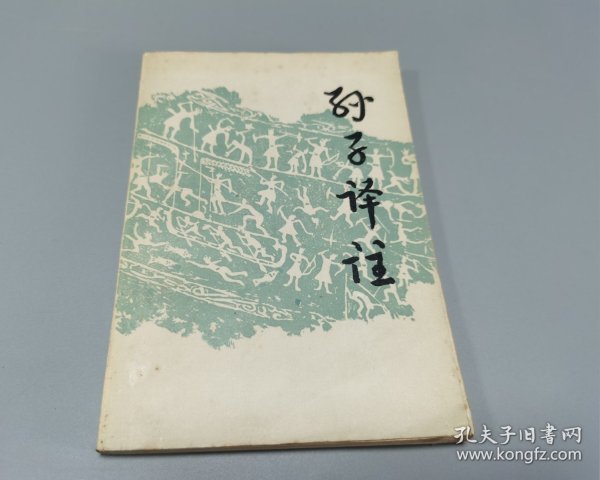 孙子译注
孔夫子旧书网
www.kongfz.com